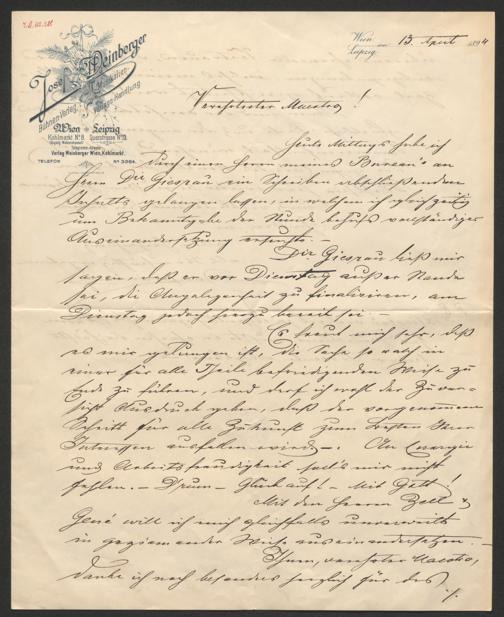 Josef Weinberger
Bühnen-Verlag
Musikalien
Verlags-Handlung
Wien Leipzig
Kohlmarkt Nº 8. Querstrasse Nº 13.
Telegramm-Adresse:
Verlag Weinberger Wien, Kohlmarkt.
TELEFON Nº 3984.
Wien
Leipzig am 13. April 1894
Verehrtester Maestro!
Heute Mittags habe ich
durch einen Herrn meines Bureau's an
Herrn Dir Giesrau ein Schreiben abschließenden
Inhalts gelangen lassen, in welchem ich gleichzeitig
um Bekanntgabe der Stunde behufs vollständiger
Auseinandersetzung ersuchte. —
Dir Giesrau ließ mir
sagen, daß er vor Dienstag außer Stande
sei, die Angelegenheit zu finalisiren, am
Dienstag jedoch hiezu bereit sei —
Es freut mich sehr, daß
es mir gelungen ist, die Sache so rasch in
einer für alle Theile befriedigenden Weise zu
Ende zu führen, und darf ich wohl der Zuver-
sicht Ausdruck geben, daß der vorgenommene
Schritt für alle Zukunft zum besten Ihrer
Interessen ausfallen wird —. An Energie
und Arbeitsfreudigkeit soll's mir nicht
fehlen. — Drum — Glück auf! — Mit Gott!
Mit den Herren Zell &
Genée will ich mich gleichfalls unverweilt
in geziemender Weise auseinandersetzen. —
Ihnen, verehrter Maestro,
danke ich noch besonders herzlich für das
./.